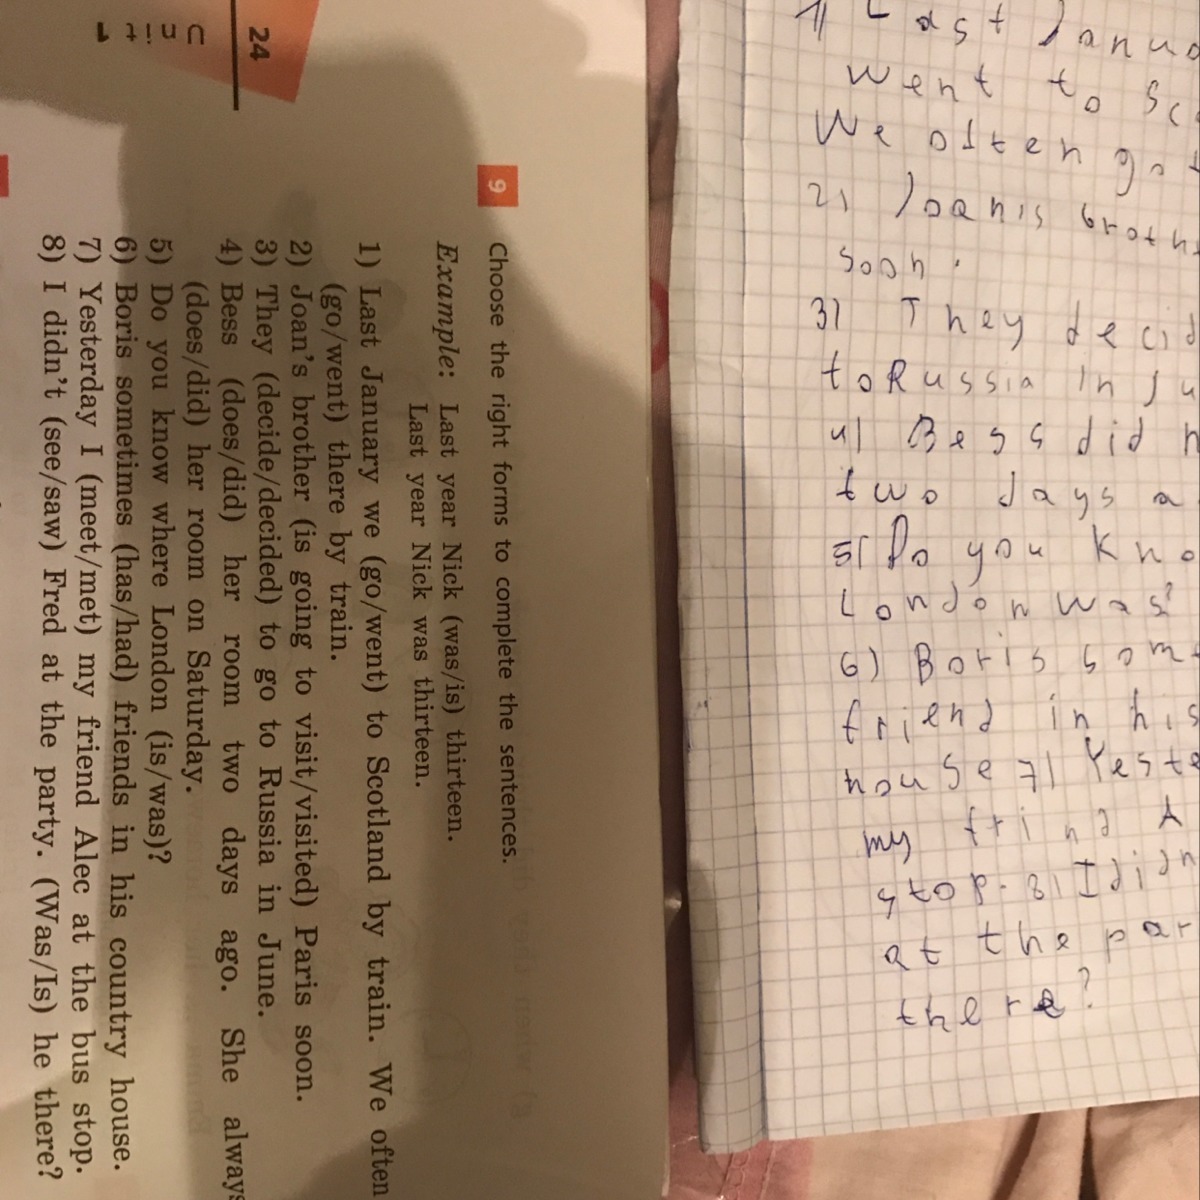 24
9 Choose the right forms to complete the sentences.
Example: Last year Nick (was/is) thirteen.
Last year Nick was thirteen.
1) Last January we (go/went) to Scotland by train. We often
(go/went) there by train.
2) Joan's brother (is going to visit/visited) Paris soon.
3) They (decide/decided) to go to Russia in June.
4) Bess (does/did) her room two days ago. She always
(does/did) her room on Saturday.
5) Do you know where London (is/was)?
6) Boris sometimes (has/had) friends in his country house.
7) Yesterday I (meet/met) my friend Alec at the bus stop.
8) I didn't (see/saw) Fred at the party. (Was/Is) he there?
1) Last
went to
We often
2)
soon.
3) They
to Russia in
4) Bess did
two days
5) Do you
London was?
6) Boris
friend in his
house 7)
my
stop. 8) I
at the
there?